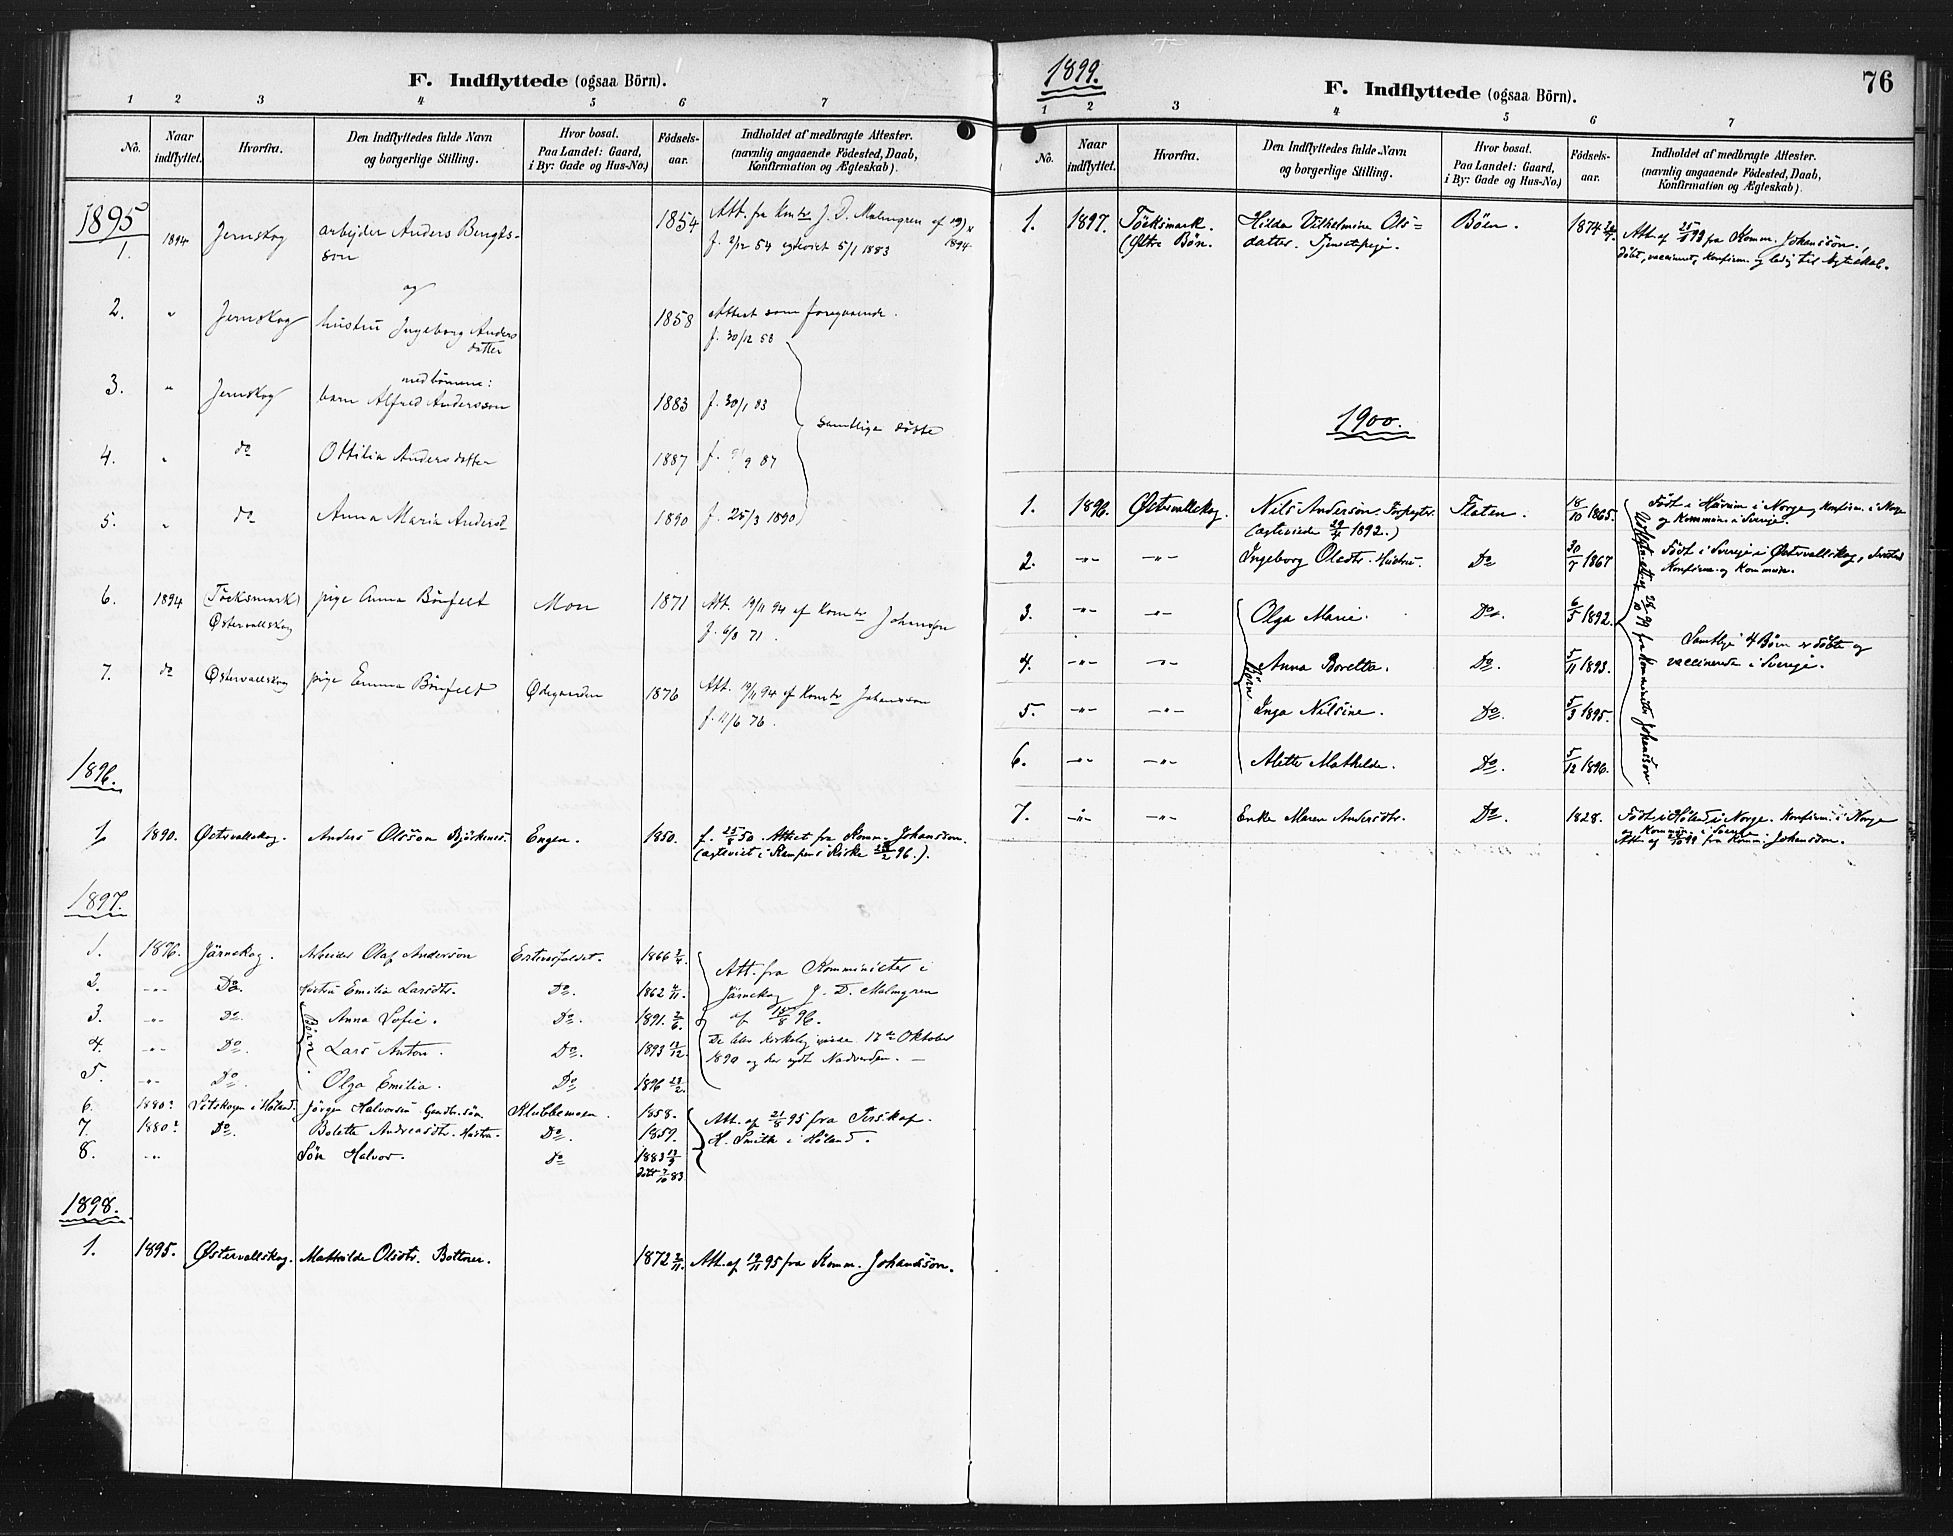 F. Indflyttede (ogsaa Börn).
1 2 3 4 5 6 7
No.
Naar indflyttet.
Hvorfra.
Den Indflyttedes fulde Navn og borgerlige Stilling.
Hvor bosat. Paa Landet: Gaard, i By: Gade og Hus-No.)
Fødsels-aar.
Indholdet af medbragte Attester. (navnlig angaaende Födested, Daab, Konfirmation og Ægteskab).
1895
1. 1894 Jernskog arbejder Anders Bengts- 1854 Att. fra Kmtr J. D. Malmgren af
son f. 2/12 54 egteviet 5/1 1883 1894
og
2. " Jernskog hustru Ingeborg Anders 1858 Attest som foregaaende.
datter f. 30/12 58
med börnene:
3. " Jernskog barn Alfred Andersson 1883 f. 30/1 83
samtlige døbte
4. " do Ottilia Andersdatter 1887 f. 9 87
5. " do Anna Maria Andersd 1890 f. 25/3 1890
6. 1894 Töcksmark pige Anna Bönfelt Mon 1871 Att. 19/11 94 af Komtr Johansson
Østervallskog f. 6/8 71.
7. do Østervallskog pige Emma Bönfeld Ødegaarden 1876 Att. 19/11 94 af Komtr Johansson
f. 11/6 76.
1896.
1. 1890. Østervallskog. Anders Olsson Björkenes. Engen. 1850. f. 25/8 50. Attest fra Komm. Johansson.
(ægteviet i Kirke 96.).
1897.
1. 1896. Järnskog. Arbeider Olaf Anderson 1866 2/4 Att. fra Komminister i
2. -"- Do. Hustru Emilia Larsdtr. Do. 1862 4/11. Järnskog J. D. Malmgren
3. -"- Do. Börn Anna Sofie. Do. 1891. 2/6. af 18/8 96.
4. -"- Do. Lars Anton. Do. 1893 13/12. De blev kirkelig viede 17de Oktober
5. -"- Do. Olga Emilia. Do. 1896 23/2. 1890 og har nydt Nadverden. —
6. 1880? i Høland. Jörgen Halvorsen Klubbemoen. 1858. Att. af 21/8 95 fra
7. 1880? Do. Bolette Andreasdtr. Hustru. Do. 1859. H. Smith i Høland.
8. -"- Sön Halvor. Do 1883 13/9
døbt 7/10 83
1898.
1. 1895. Østervallskog. Mathilde Olsdtr. Bottner. 1872 2/11. Att. af 19/11 95 fra Komm. Johansson.
1899.
F. Indflyttede (ogsaa Börn).
76
1 2 3 4 5 6 7
No.
Naar indflyttet.
Hvorfra.
Den Indflyttedes fulde Navn og borgerlige Stilling.
Hvor bosat. Paa Landet: Gaard, i By: Gade og Hus-No.)
Födsels-aar.
Indholdet af medbragte Attester. (navnlig angaaende Födested, Daab, Konfirmation og Ægteskab).
1. 1897. Töcksmark. Hilda Vilhelmine Ols= Böen. 1874 Att. af 93 fra Komm. Johansson.,
(Östre Bön. datter. Tjenestepige. döbt, vaccineret, Konfirm. og ledig til Ægteskab.
1900.
1. 1896. Østervallskog. Nils Anderson. Flaten. 18/10 1865. Födt i i Norge, Konfirm. i Norge
(ægteviede 29/4 1892.) og Kommun. i Sverige.
2. -"- -"- Ingeborg Olsdtr. Hustru. Do 30/7 1867 Födt i Sverige i Østervallskog,
Konfirm. og Kommun.
3. -"- -"- Börn Olga Marie. Do. 6/5 1892.
4. -"- -"- Anna Boretta. Do. 5/11 1893. Samtlige 4 Börn er döbte og
vaccinerede i Sverige.
5. -"- -"- Inga Nilsine. Do. 5/3 1895.
6. -"- -"- Alette Mathilde. Do. 5/12 1896.
99 fra Komminister Johansson
7. -"- -"- Enke Maren Andersdtr. Do. 1828. Födt i Höland i Norge. Konfirm. i Norge
og Kommun. i Sverige
Att. af 99 fra Komm. Johansson.